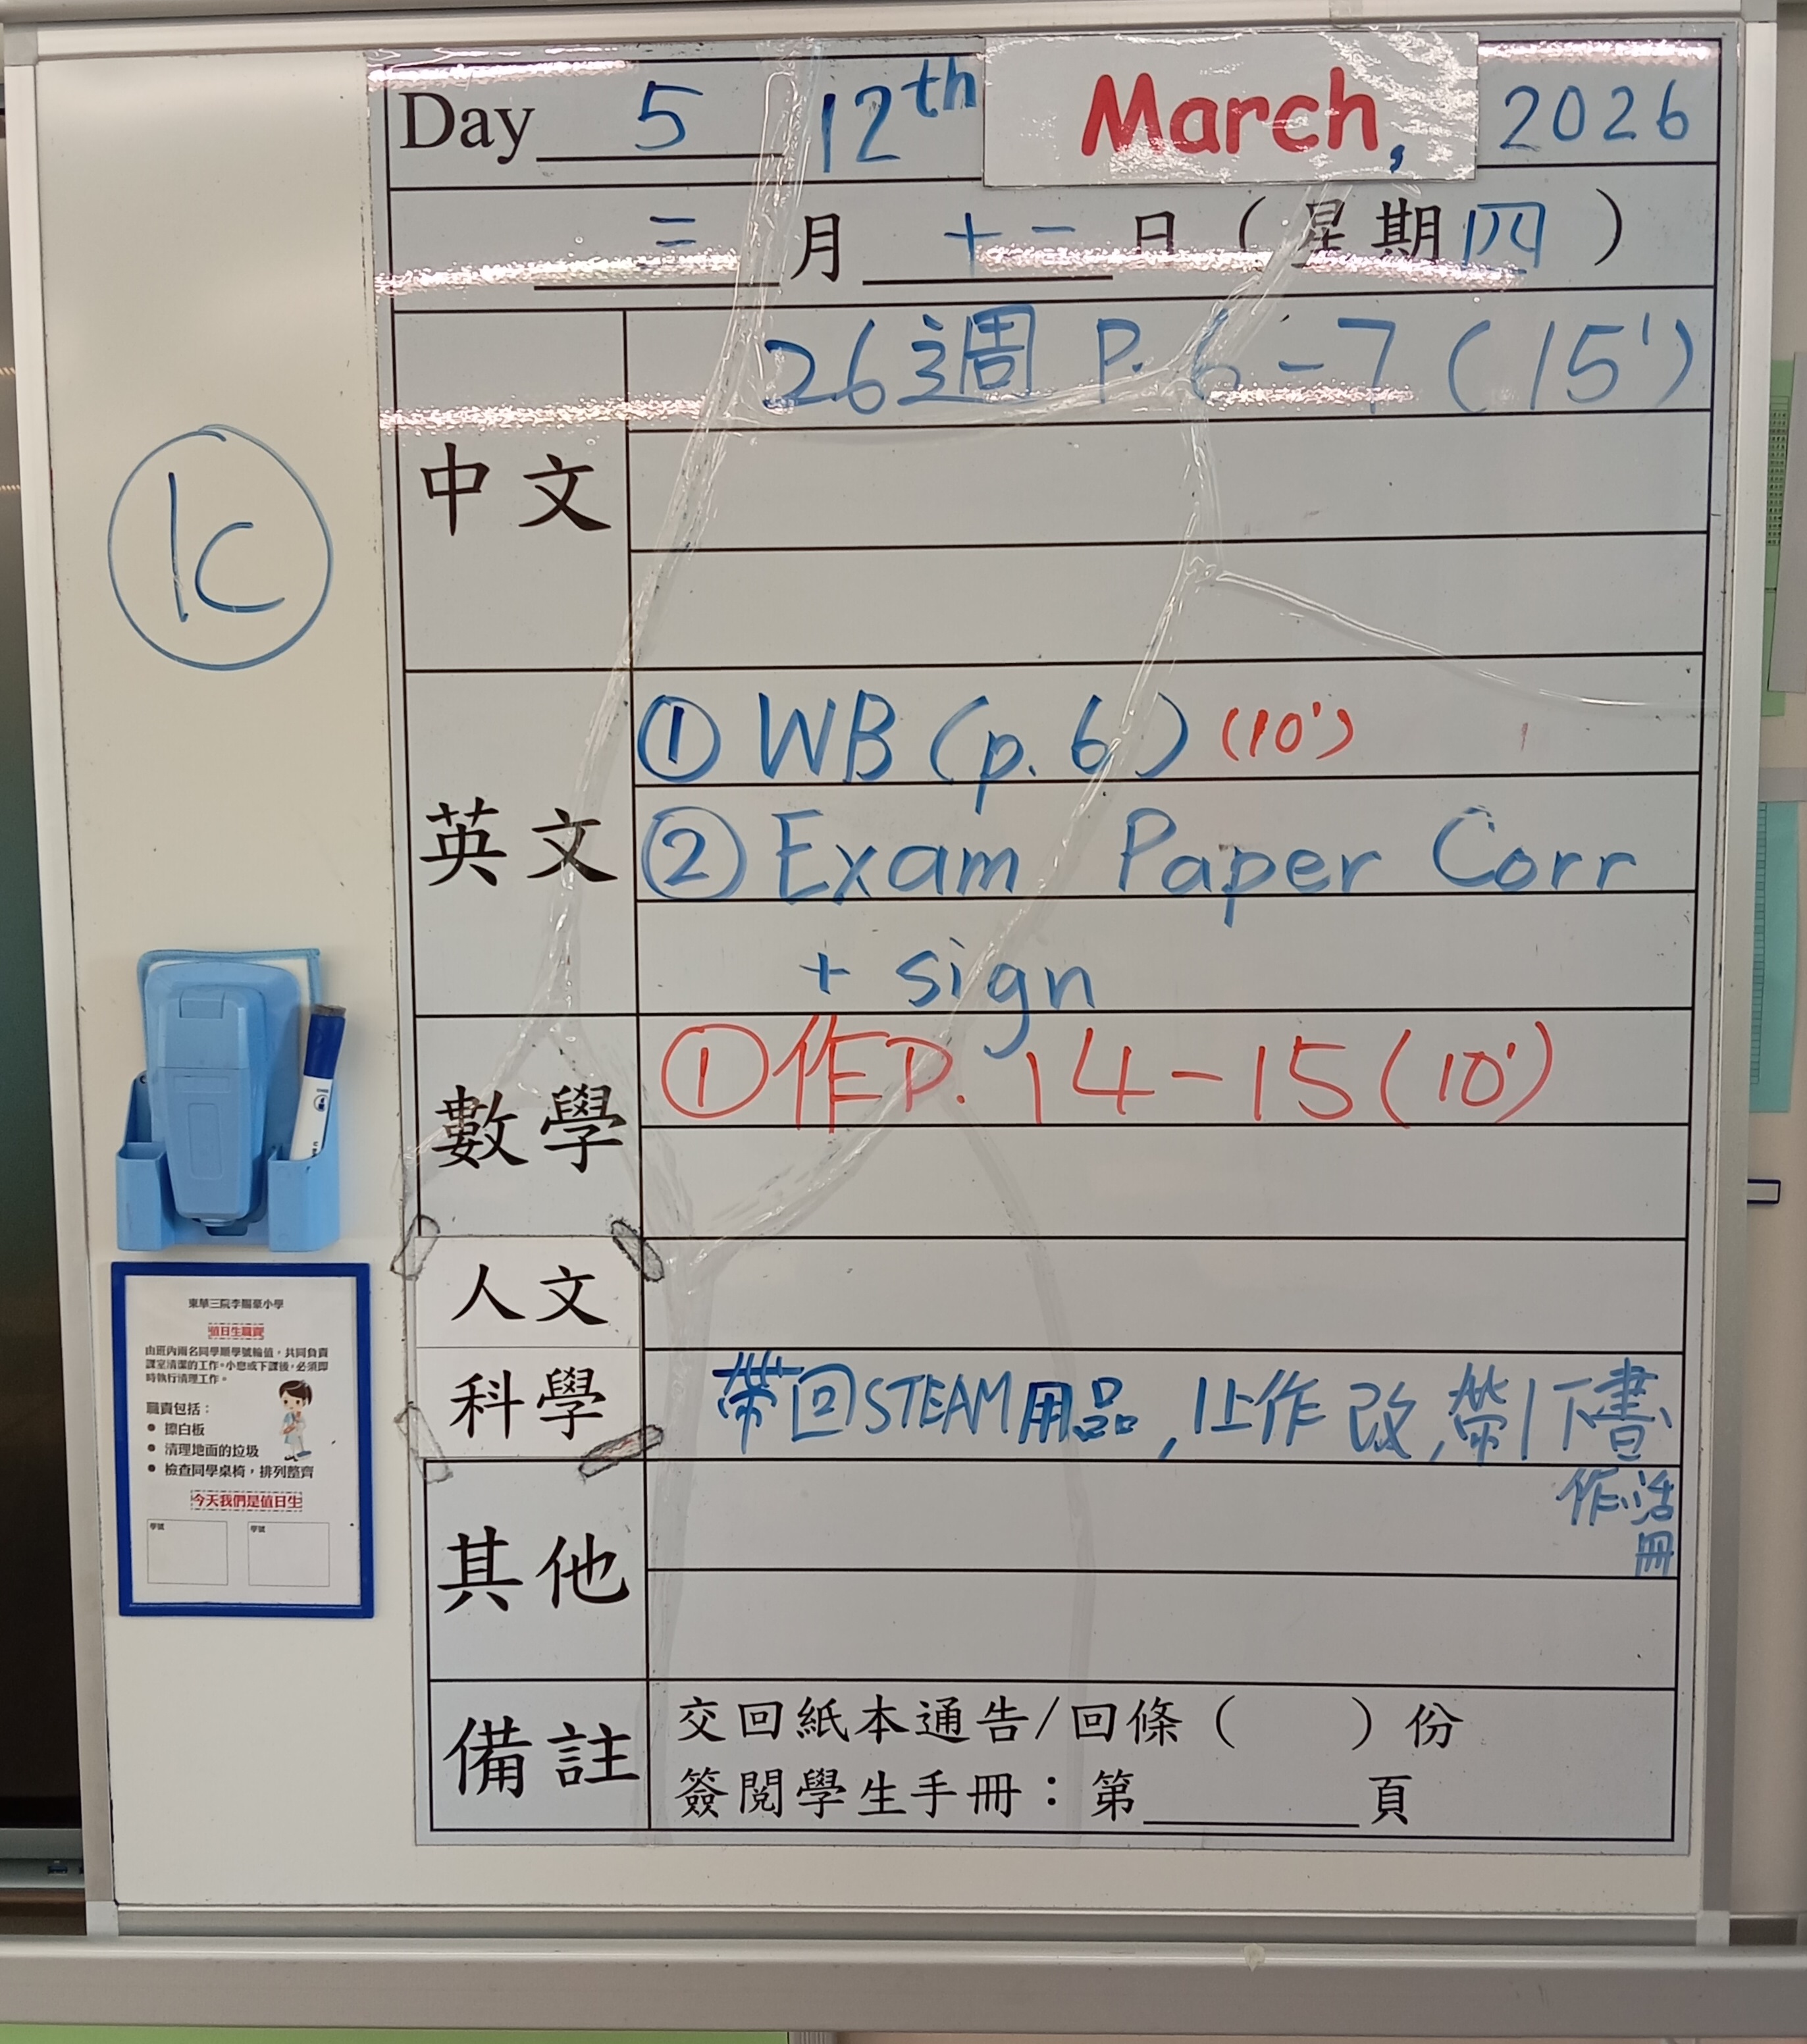 Day 5 12th March, 2026
三月十一日(星期四)
1C
中文
26週 P. 6-7 (15')
英文
① WB (p. 6) (10')
② Exam Paper Corr
+ sign
數學
① 作P. 14-15 (10')
人文
科學
帶回STEAM用品, 1上作改, 帶1下書
作活
冊
其他
備註
交回紙本通告/回條( )份
簽閱學生手冊:第 頁
東華三院李賜豪小學
值日生職責
由班內兩名同學順學號輪值,共同負責
課室清潔的工作。小息或下課後,必須即
時執行清理工作。
職責包括:
• 擦白板
• 清理地面的垃圾
• 檢查同學桌椅,排列整齊
今天我們是值日生
學號 學號